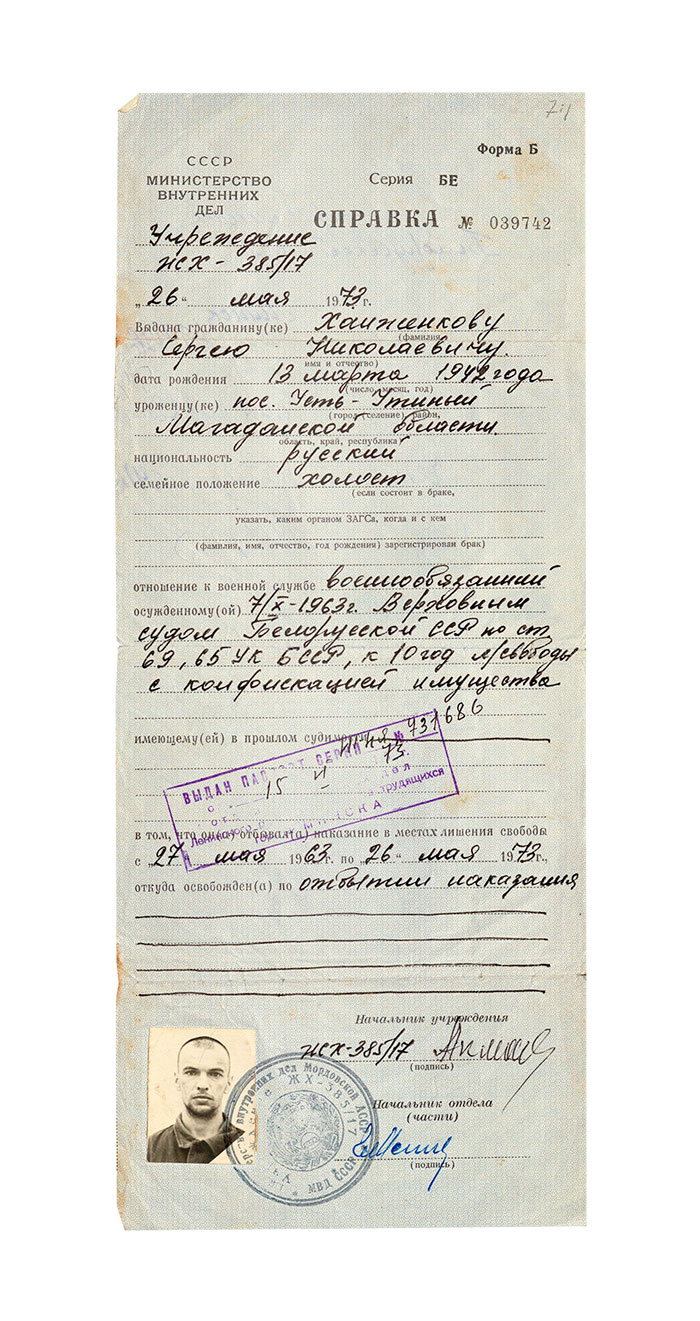 Форма Б
СССР
МИНИСТЕРСТВО
ВНУТРЕННИХ
ДЕЛ
Серия БЕ
СПРАВКА № 039742
Учреждение
ЖХ - 385/17
„26“ мая 1973 г.
Выдана гражданину(ке) Ханженкову
(фамилия,
Сергею Николаевичу.
имя и отчество)
дата рождения 13 марта 1942 года
(число, месяц, год)
уроженцу(ке) пос. Усть-Утиный
(город (селение) район,
Магаданской области.
область, край, республика)
национальность русский
семейное положение холост
(если состоит в браке,
указать, каким органом ЗАГСа, когда и с кем
(фамилия, имя, отчество, год рождения) зарегистрирован брак)
отношение к военной службе военнообязанный
осужденному(ой) 7/X-1963г. Верховным
судом Белорусской ССР по ст
69, 65 УК БССР, к 10 год л/свободы
с конфискацией имущества
имеющему(ей) в прошлом судимость
ВЫДАН ПАСПОРТ СЕРИИ № 731686
15 73 г.
Ленинского трудящихся
гор. МИНСКА
в том, что он(а) отбывал(а) наказание в местах лишения свободы
с „27“ мая 1963 г. по „26“ мая 1973 г.,
откуда освобожден(а) по отбытии наказания
Начальник учреждения
ЖХ-385/17
(подпись)
Начальник отдела
(части)
(подпись)
внутренних дел Мордовской АССР
ЖХ-385/17
МВД СССР